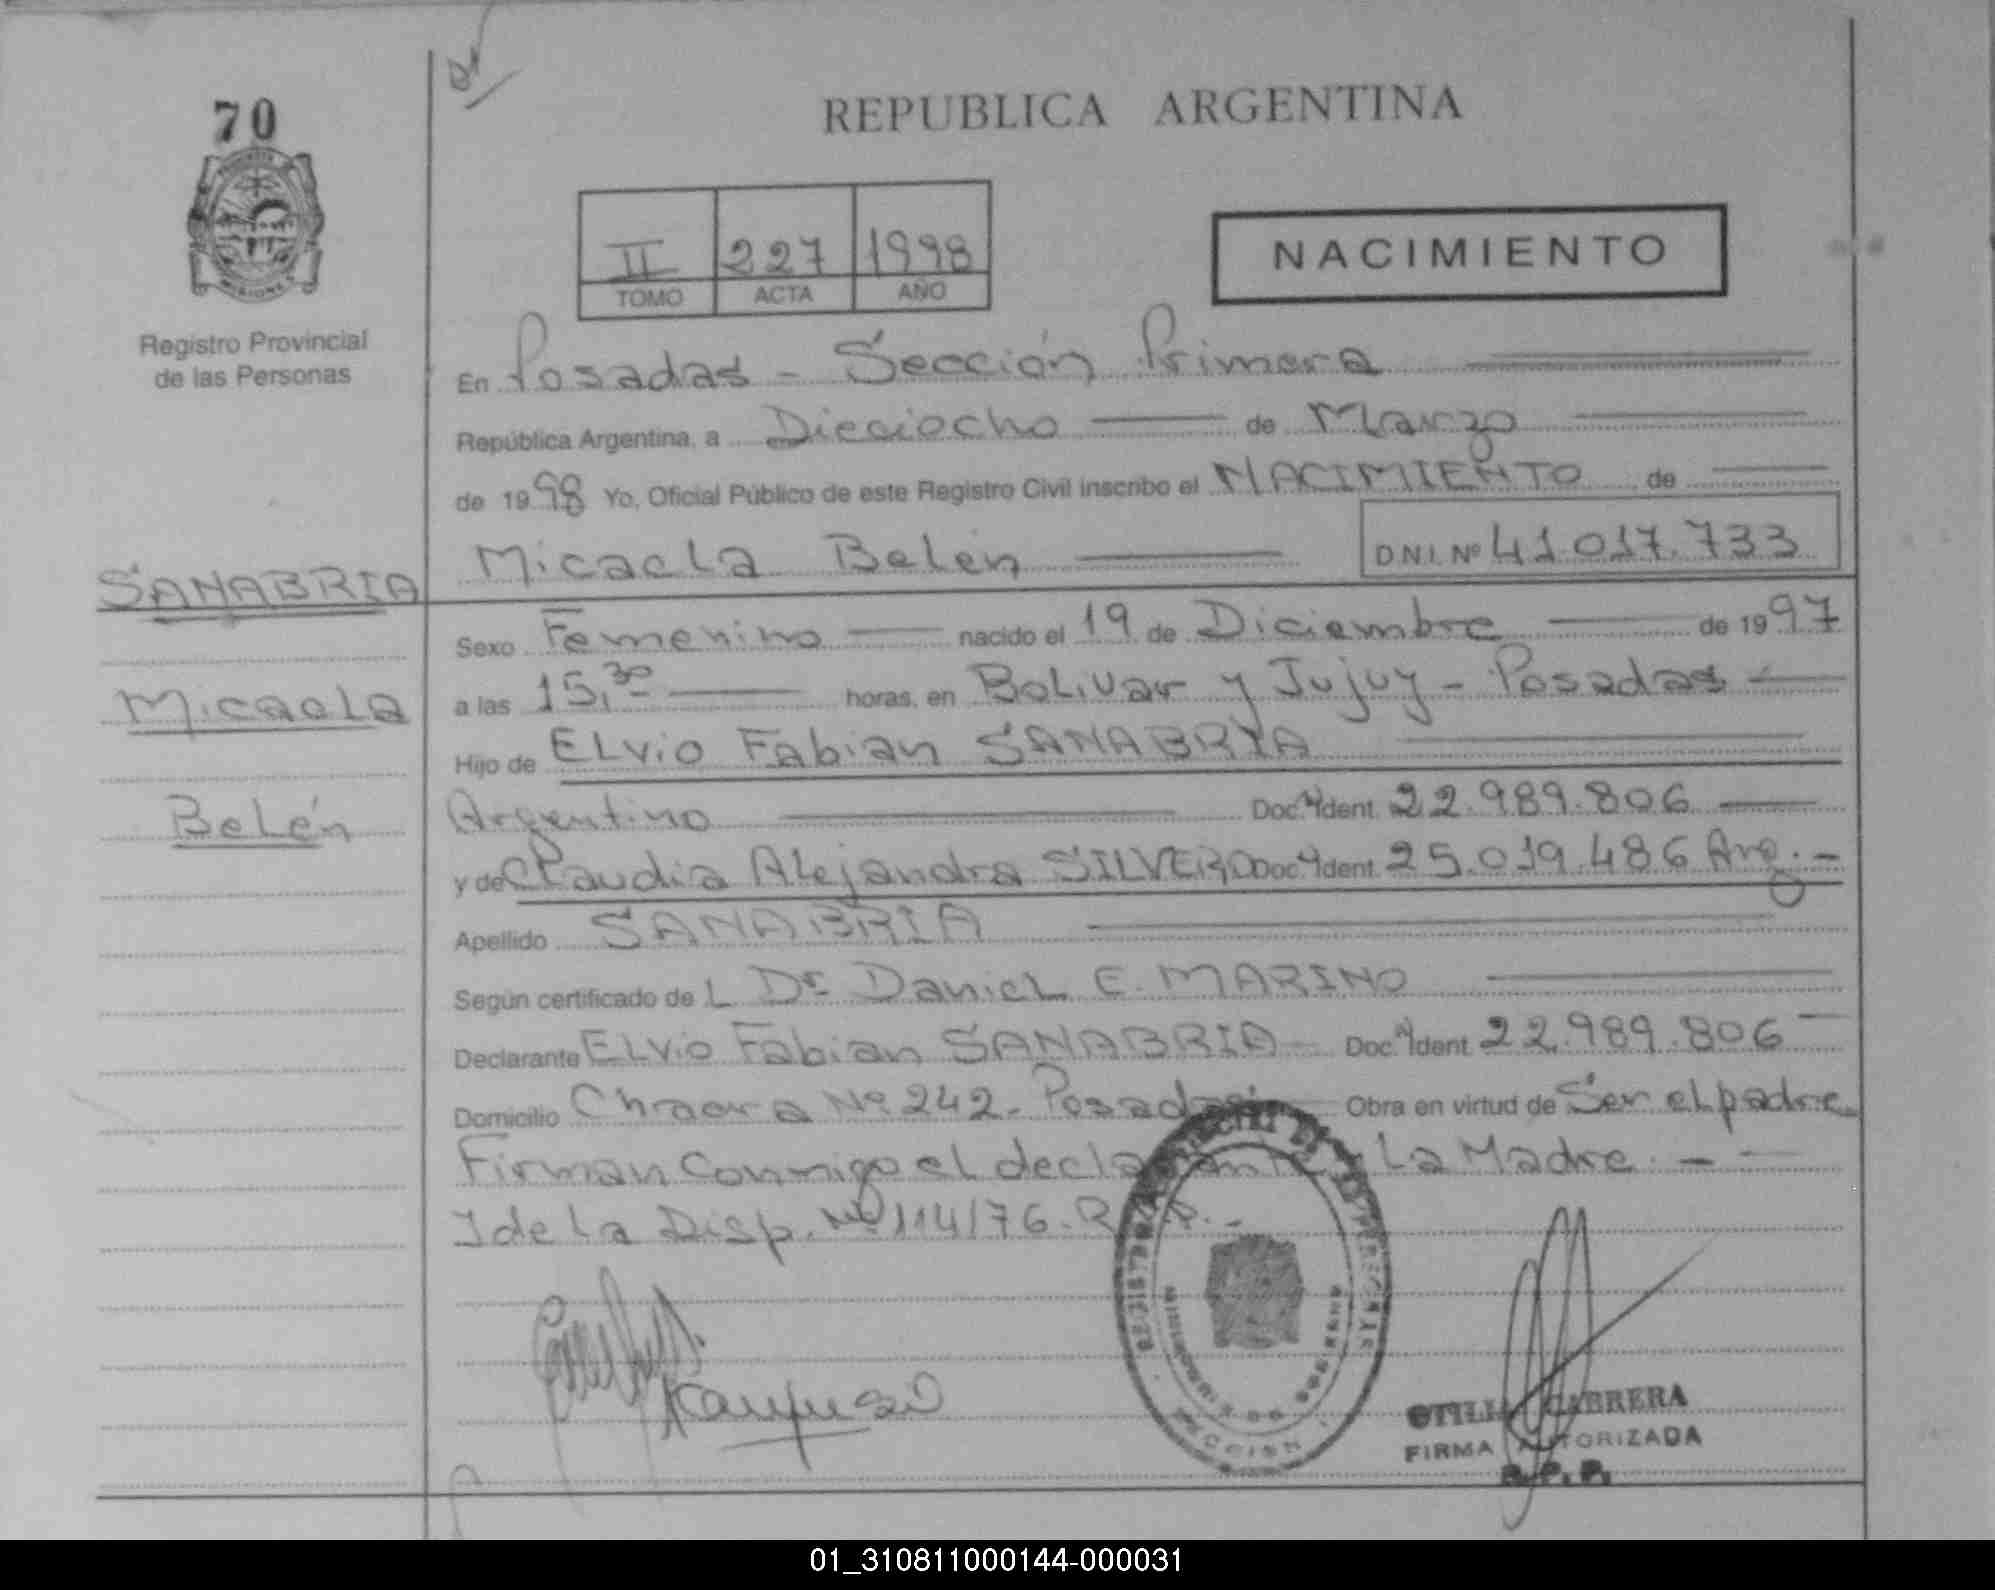 70
REPUBLICA ARGENTINA
II 227 1998
TOMO ACTA AÑO
NACIMIENTO
Registro Provincial
de las Personas
En Posadas - Sección Primera
República Argentina, a Dieciocho de Marzo
de 1998 Yo, Oficial Público de este Registro Civil inscribo el NACIMIENTO de
Micaela Belén D.N.I. Nº 41.017.733
SANABRIA
Micaela
Belén
Sexo Femenino nacido el 19 de Diciembre de 1997
a las 15,30 horas, en Bolivar y Jujuy - Posadas
Hijo de Elvio Fabian SANABRIA
Argentino Doc. Ident. 22.989.806
y de Claudia Alejandra SILVERO Doc. Ident. 25.019.486 Arg.-
Apellido SANABRIA
Según certificado del Dr Daniel E. MARINO
Declarante Elvio Fabian SANABRIA Doc. Ident. 22.989.806
Domicilio Chacra Nº 242 - Posadas Obra en virtud de Ser el padre
Firman conmigo el declarante y La Madre. -
de La Disp. Nº 114/76. R.P.P. -
SECCION 1
OTILIA CABRERA
FIRMA AUTORIZADA
R. P. P.
01_310811000144-000031